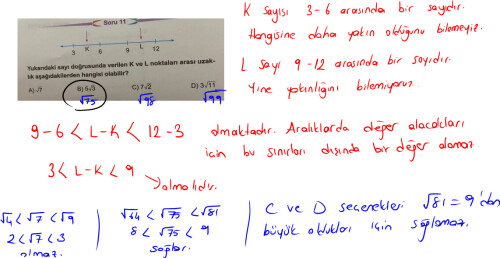 Soru 11
K
L
3 6 9 12
Yukarıdaki sayı doğrusunda verilen K ve L noktaları arası uzaklık aşağıdakilerden hangisi olabilir?
A) √7 B) 5√3 C) 7√2 D) 3√11
√75 √98 √99
K sayısı 3-6 arasında bir sayıdır.
Hangisine daha yakın olduğunu bilemeyiz.
L sayısı 9-12 arasında bir sayıdır.
Yine yakınlığını bilemiyoruz.
9-6 < L-K < 12-3 olmaktadır. Aralıklarda değer alacakları
için bu sınırları dışında bir değer alamaz.
3 < L-K < 9
almalıdır.
√4 < √7 < √9
2 < √7 < 3
olmaz.
√64 < √75 < √81
8 < √75 < 9
sağlar.
C ve D seçenekleri √81 = 9'dan
büyük oldukları için sağlamaz.